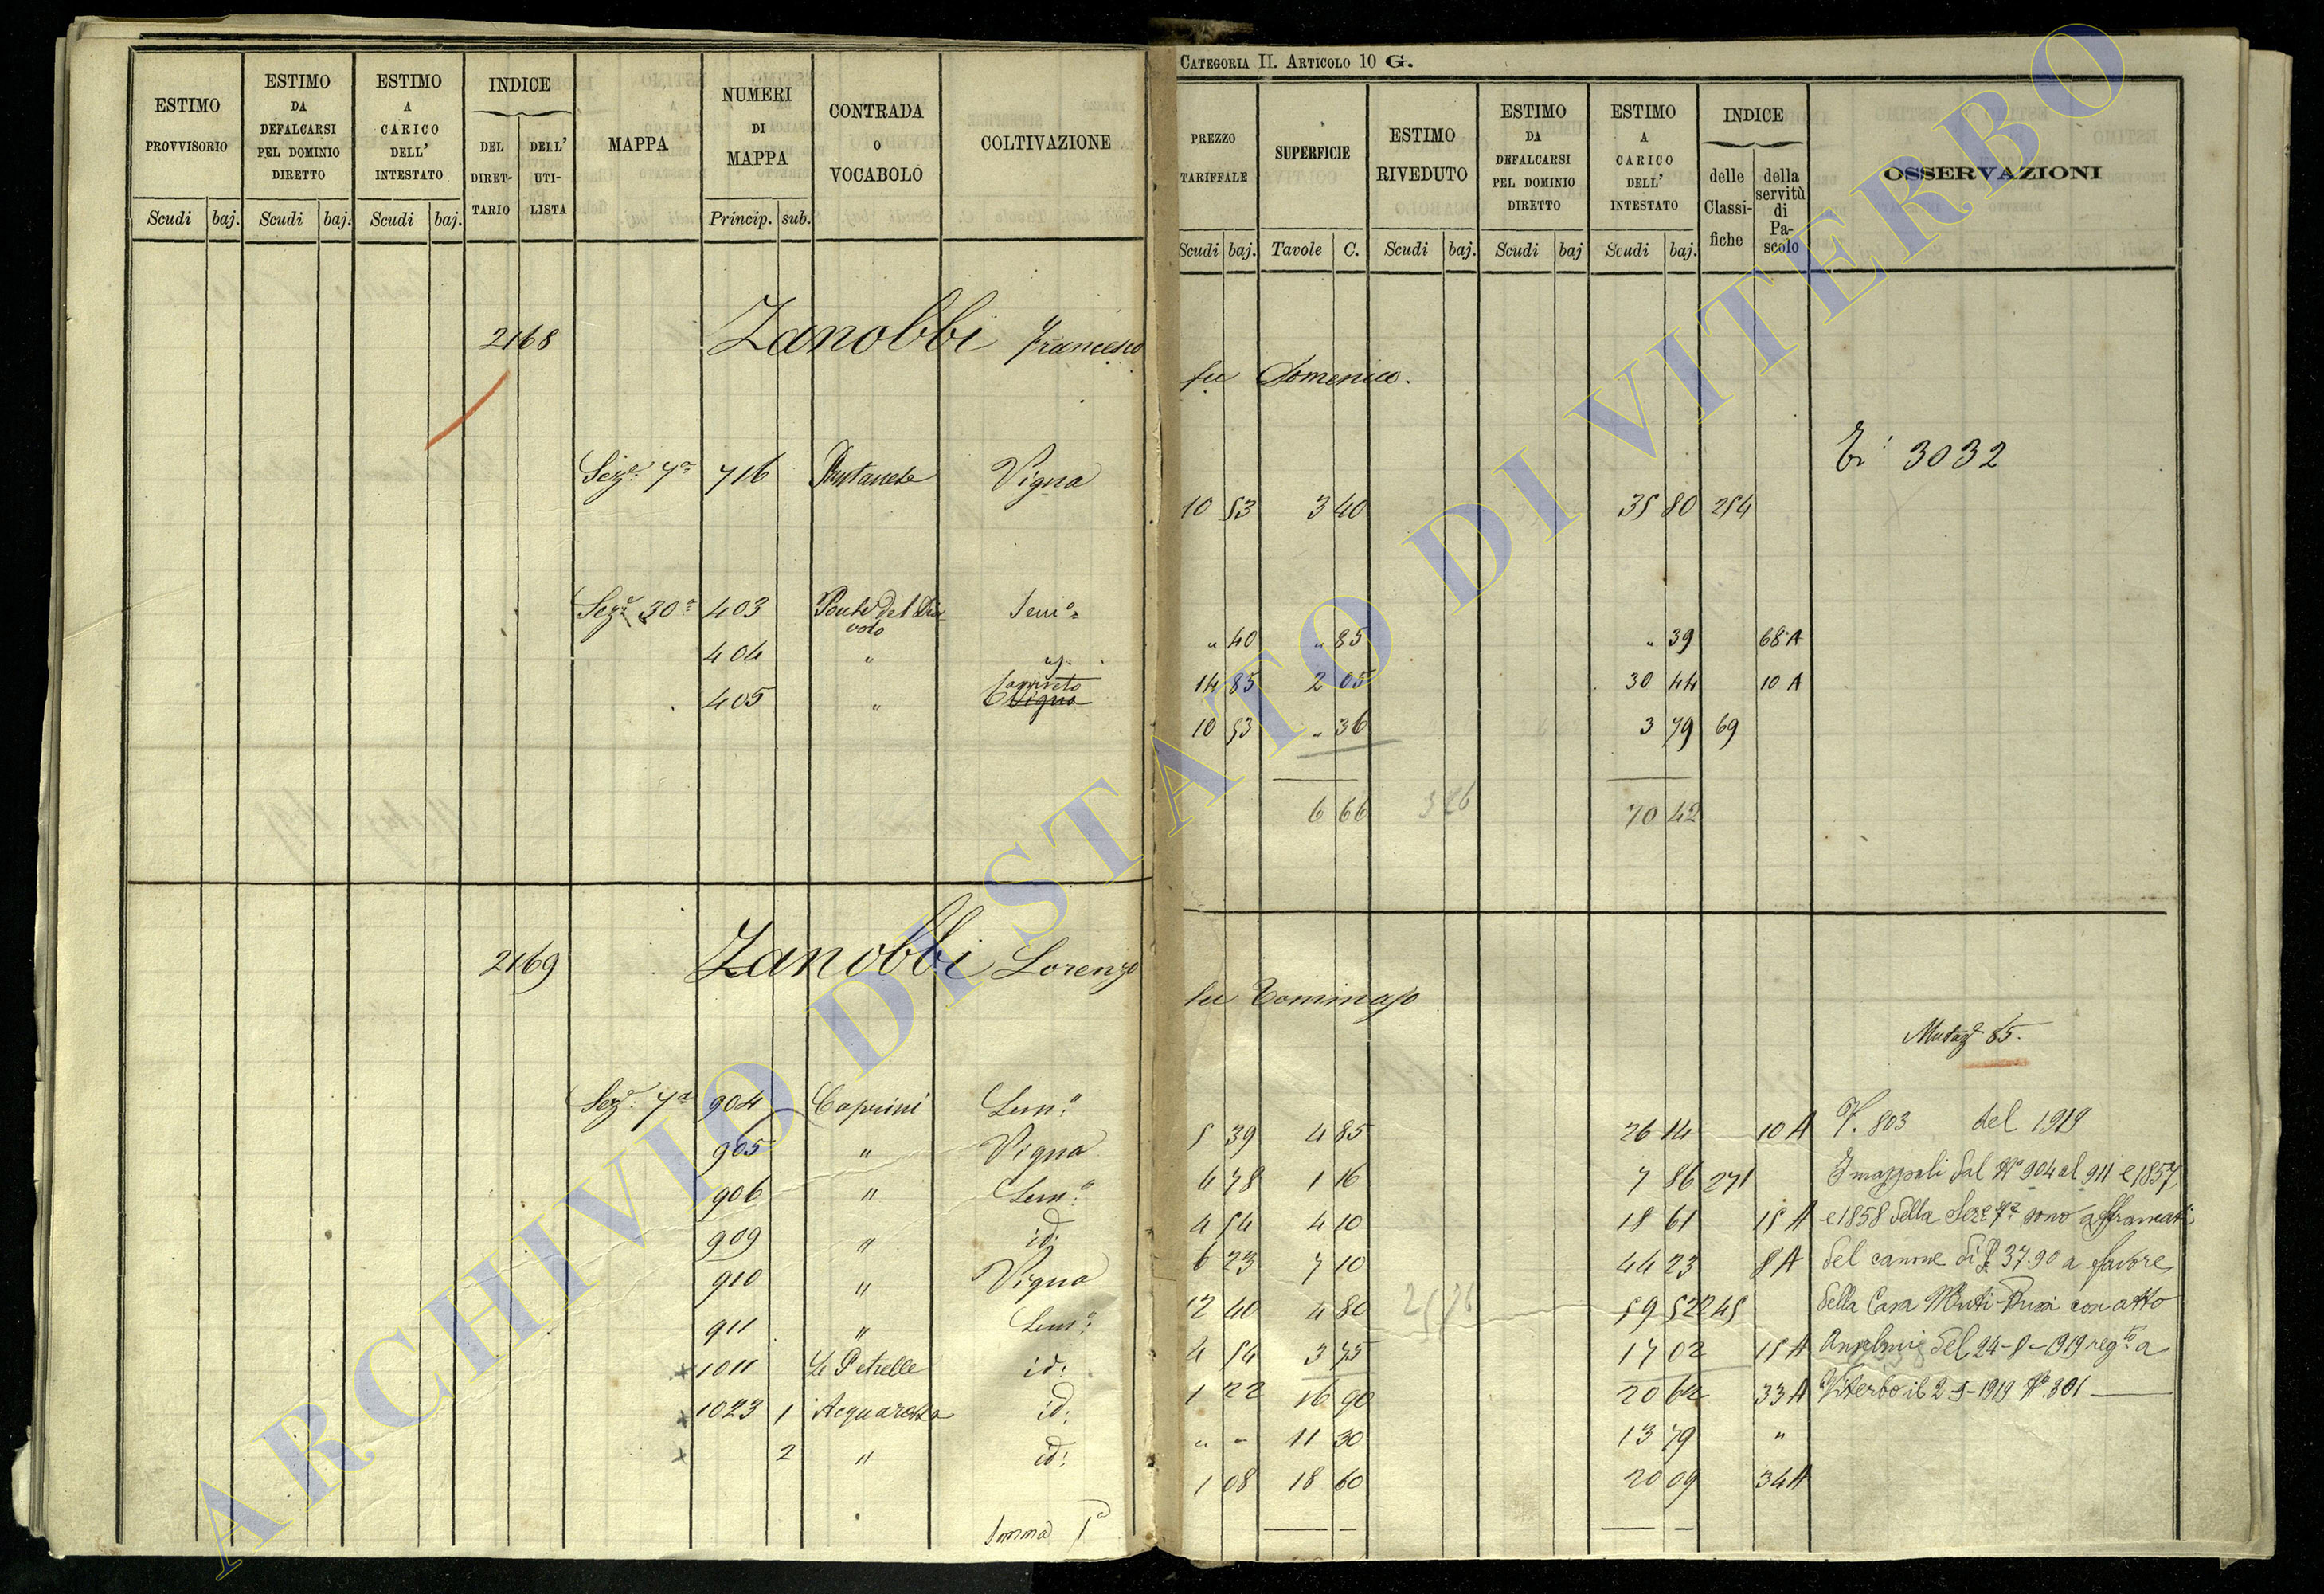 CATEGORIA II. ARTICOLO 10 G.
ESTIMO PROVVISORIO
ESTIMO DA DEFALCARSI PEL DOMINIO DIRETTO
ESTIMO A CARICO DELL' INTESTATO
INDICE
DEL DIRETTARIO
DELL' UTILISTA
MAPPA
NUMERI DI MAPPA
CONTRADA O VOCABOLO
COLTIVAZIONE
Scudi baj. Scudi baj. Scudi baj. Princip. sub.
PREZZO TARIFFALE
SUPERFICIE
ESTIMO RIVEDUTO
ESTIMO DA DEFALCARSI PEL DOMINIO DIRETTO
ESTIMO A CARICO DELL' INTESTATO
INDICE
delle Classifiche
della servitù di Pascolo
OSSERVAZIONI
Scudi baj. Tavole C. Scudi baj. Scudi baj Scudi baj.
2168 Zanobbi Francesco fu Domenico.
3032
Sez.e 7a 716 Vigna 10 53 3 40 35 80 254
Sez.e 30a 403 Ponte del Dia
volo Sem.o " 40 " 85 " 39 68 A
404 " 14 85 2 05 30 44 10 A
405 " Canneto
Vigna 10 53 " 36 3 79 69
6 66 3 26 70 42
2169 Zanobbi Lorenzo fu Tommaso
Mutaz.e 85.
Sez.e 7a 904 Caprini Sem.o 5 39 4 85 26 14 10 A
905 " Vigna 6 78 1 16 7 86 271
906 " Sem.o 4 54 4 10 18 61 15 A
909 " id: 6 23 7 10 44 23 8 A
910 " Vigna 12 40 4 80 59 52 245
911 " Sem.o 4 54 3 75 17 02 15 A
x 1011 Le Petrelle id: 1 22 16 90 20 62 33 A
x 1023 1 Acquarossa id: " " 11 30 13 79 "
x 2 " id: 1 08 18 60 20 09 34 A
V. 803 del 1919
I mappali dal No 904 al 911 e 1857
e 1858 della Sez.e 7a sono affrancati
del canone di £ 37.90 a favore
della Casa con atto
Anselmi del 24-8-1919 reg.to a
Viterbo il 2-9-1919 No 301
Somma 1a
ARCHIVIO DI STATO DI VITERBO